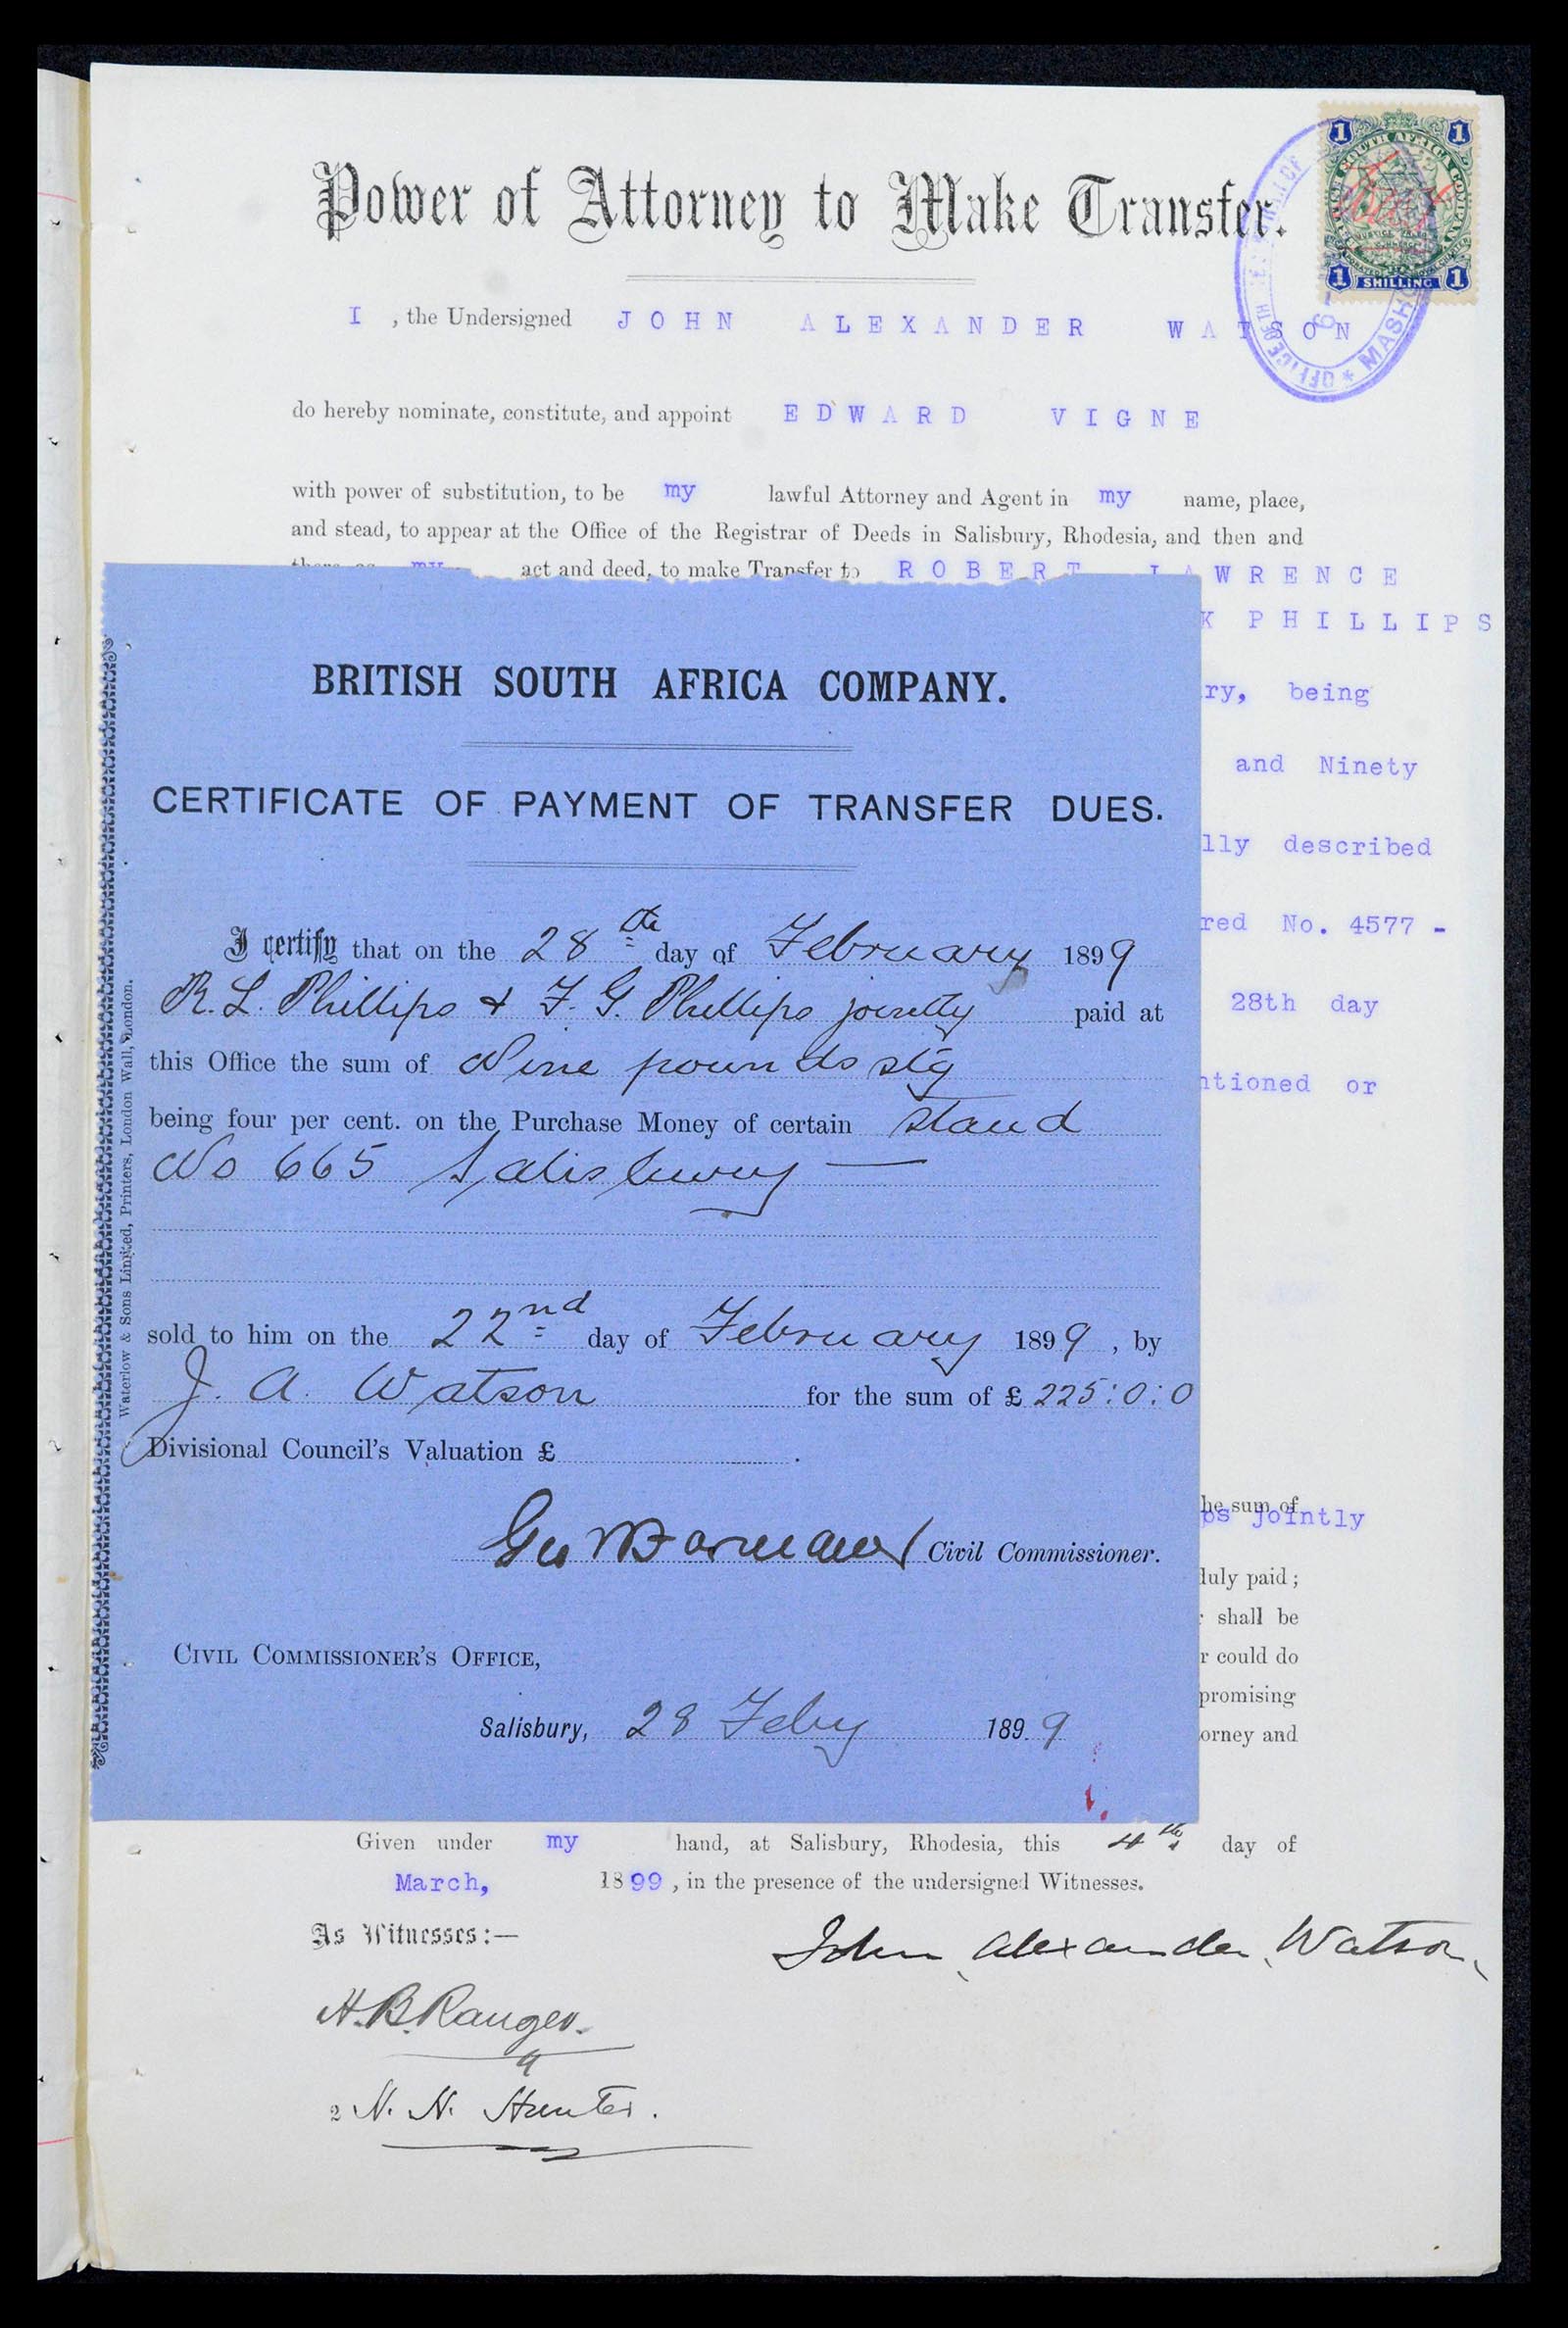 Power of Attorney to Make Transfer.
1 1
1 SHILLING 1
I , the Undersigned JOHN ALEXANDER WATSON
do hereby nominate, constitute, and appoint EDWARD VIGNE
with power of substitution, to be my lawful Attorney and Agent in my name, place,
and stead, to appear at the Office of the Registrar of Deeds in Salisbury, Rhodesia, and then and
there as my act and deed, to make Transfer to ROBERT LAWRENCE
K PHILLIPS
ry, being
and Ninety
lly described
red No. 4577 -
28th day
ntioned or
he sum of
ps jointly
duly paid ;
r shall be
r could do
promising
orney and
BRITISH SOUTH AFRICA COMPANY.
CERTIFICATE OF PAYMENT OF TRANSFER DUES.
I certify that on the 28th day of February 1899
R. L. Phillips & F. G. Phillips jointly paid at
this Office the sum of Nine pounds stg
being four per cent. on the Purchase Money of certain stand
No 665 Salisbury
sold to him on the 22nd day of February 1899 , by
J. A. Watson for the sum of £ 225:0:0
Divisional Council's Valuation £ .
Civil Commissioner.
CIVIL COMMISSIONER'S OFFICE,
Salisbury, 28 Feby 1899
Waterlow & Sons Limited, Printers, London Wall, London.
Given under my hand, at Salisbury, Rhodesia, this 4th day of
March, 1899 , in the presence of the undersigned Witnesses.
As Witnesses:—
John Alexander Watson
H. B. Ranger.
2 N. N. Hunter.